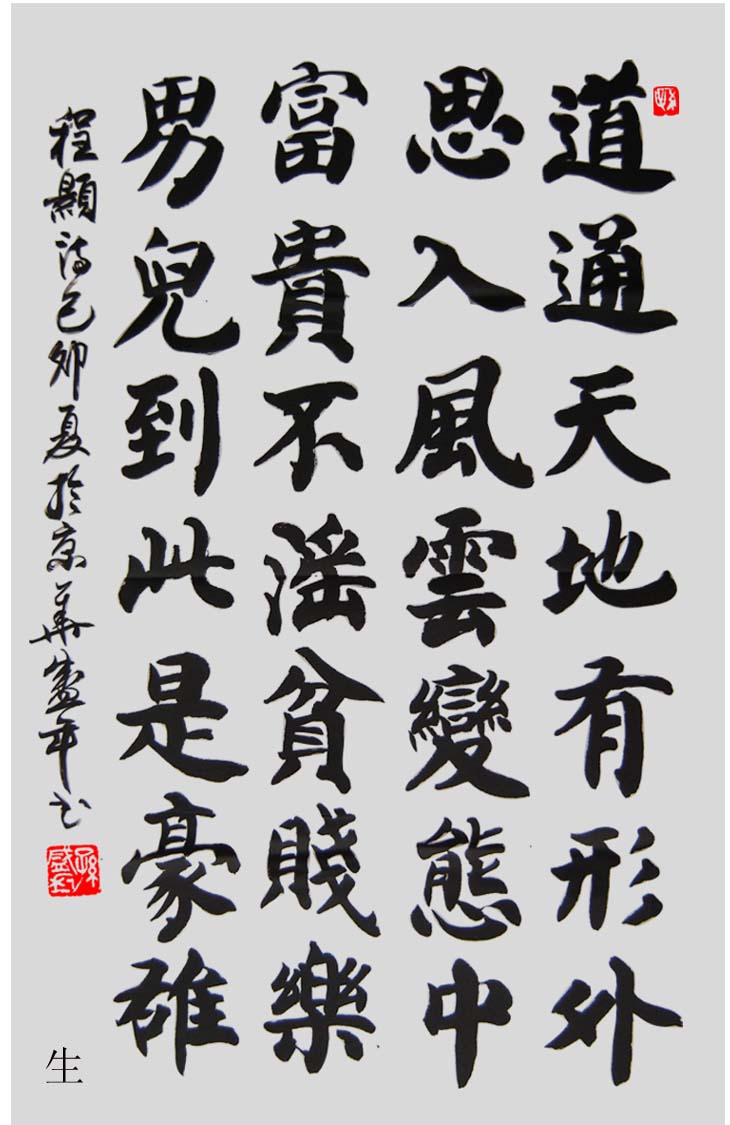 道通天地有形外
思入風雲變態中
富貴不滛貧賤樂
男兒到此是豪䧺
程顥诗己卯夏於京華盛平书
生